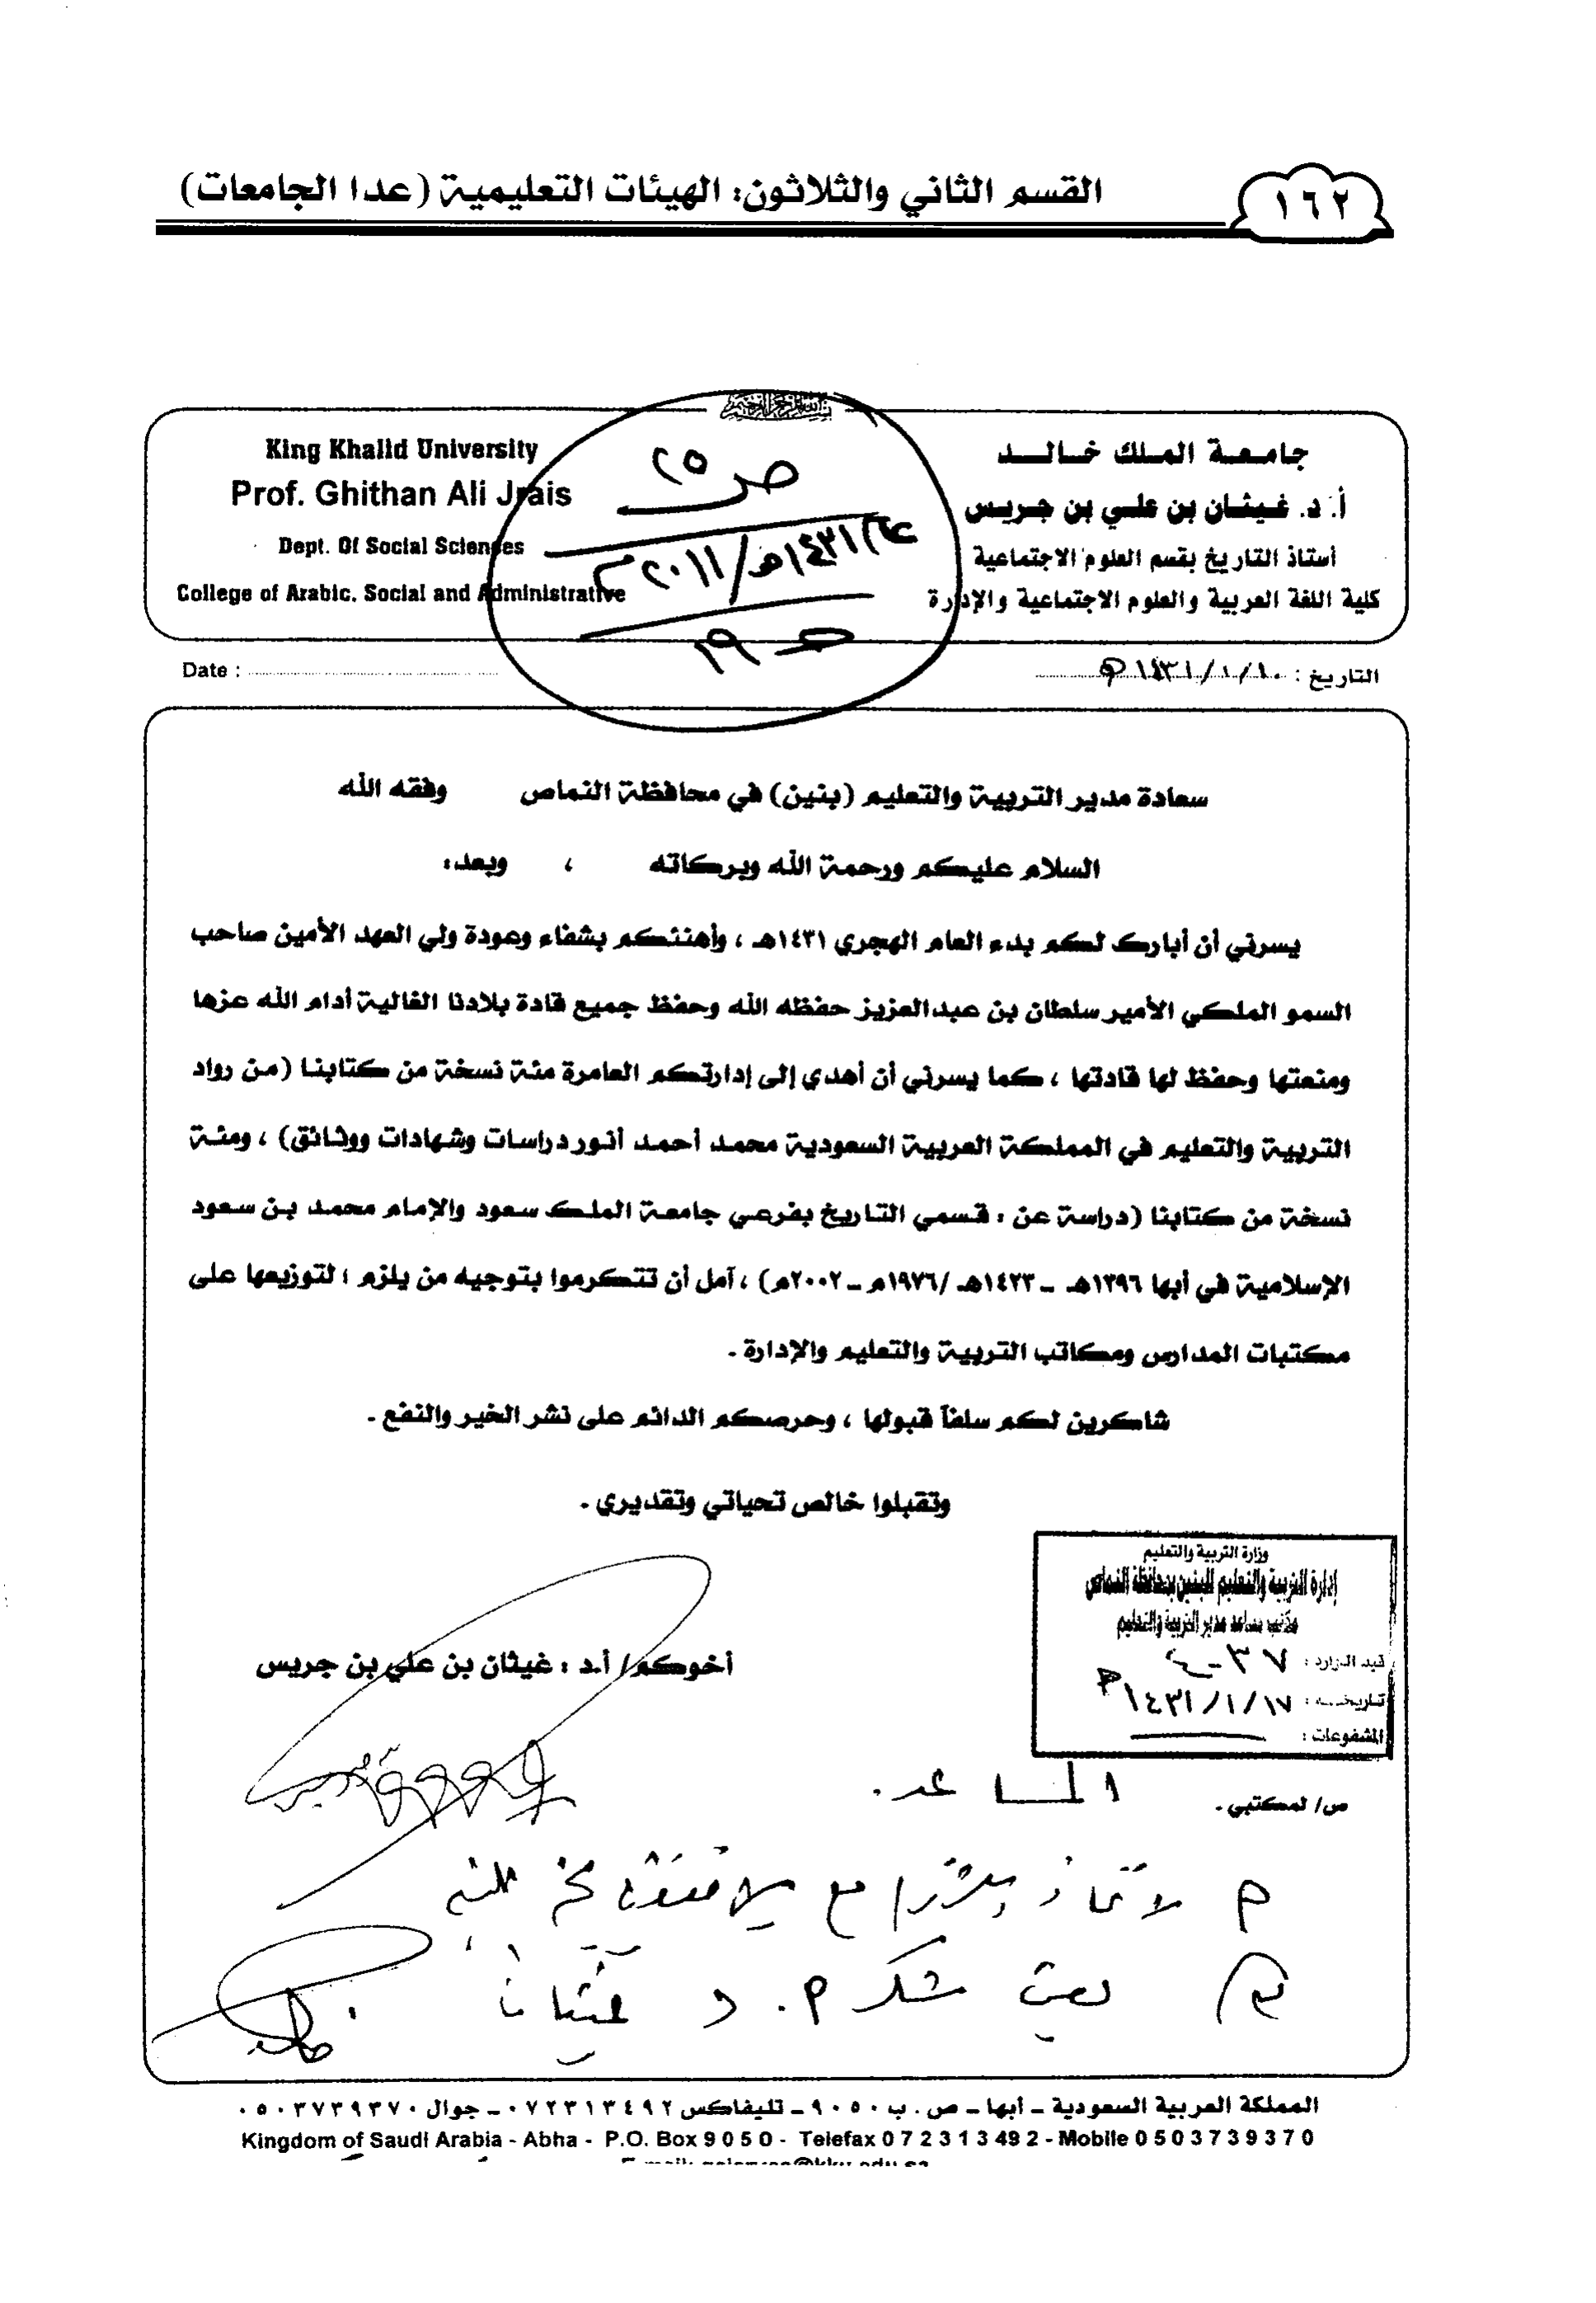 ١٦٢
القسم الثاني والثلاثون: الهيئات التعليمية (عدا الجامعات)
بسم الله الرحمن الرحيم
جامعة الملك خالد
أ. د. غيثان بن علي بن جريس
أستاذ التاريخ بقسم العلوم الاجتماعية
كلية اللغة العربية والعلوم الاجتماعية والإدارة
King Khalid University
Prof. Ghithan Ali Jrais
Dept. Of Social Sciences
College of Arabic, Social and Administrative
ص ٢٥
١٤٣١هـ/٢٠١١م
التاريخ : ١٤٣١/١/١٠هـ
Date :
سعادة مدير التربية والتعليم (بنين) في محافظة النماص وفقه الله
السلام عليكم ورحمة الله وبركاته ، وبعد:
يسرني أن أبارك لكم بدء العام الهجري ١٤٣١هـ ، وأهنئكم بشفاء وعودة ولي العهد الأمين صاحب
السمو الملكي الأمير سلطان بن عبدالعزيز حفظه الله وحفظ جميع قادة بلادنا الغالية أدام الله عزها
ومنعتها وحفظ لها قادتها ، كما يسرني أن أهدي إلى إدارتكم العامرة مئة نسخة من كتابنا (من رواد
التربية والتعليم في المملكة العربية السعودية محمد أحمد أنور دراسات وشهادات ووثائق) ، ومئة
نسخة من كتابنا (دراسة عن : قسمي التاريخ بفرعي جامعة الملك سعود والإمام محمد بن سعود
الإسلامية في أبها ١٣٩٦هـ ـ ١٤٢٣هـ /١٩٧٦م ـ ٢٠٠٢م) ، آمل أن تتكرموا بتوجيه من يلزم ؛ لتوزيعها على
مكتبات المدارس ومكاتب التربية والتعليم والإدارة .
شاكرين لكم سلفاً قبولها ، وحرصكم الدائم على نشر الخير والنفع .
وتقبلوا خالص تحياتي وتقديري .
أخوكم/ أ.د : غيثان بن علي بن جريس
وزارة التربية والتعليم
إدارة التربية والتعليم للبنين بمحافظة النماص
مكتب مساعد مدير التربية والتعليم
قيد الوارد :
تاريخـــه : ١٤٣١/١/١٧هـ
المشفوعات :
ص/ لمكتبي .
المساعد .
شكر د غيثان
المملكة العربية السعودية ـ أبها ـ ص . ب ٩٠٥٠ ـ تليفاكس ٠٧٢٣١٣٤٩٢ ـ جوال ٠٥٠٣٧٣٩٣٧٠
Kingdom of Saudi Arabia - Abha - P.O. Box 9 0 5 0 - Telefax 0 7 2 3 1 3 49 2 - Mobile 0 5 0 3 7 3 9 3 7 0